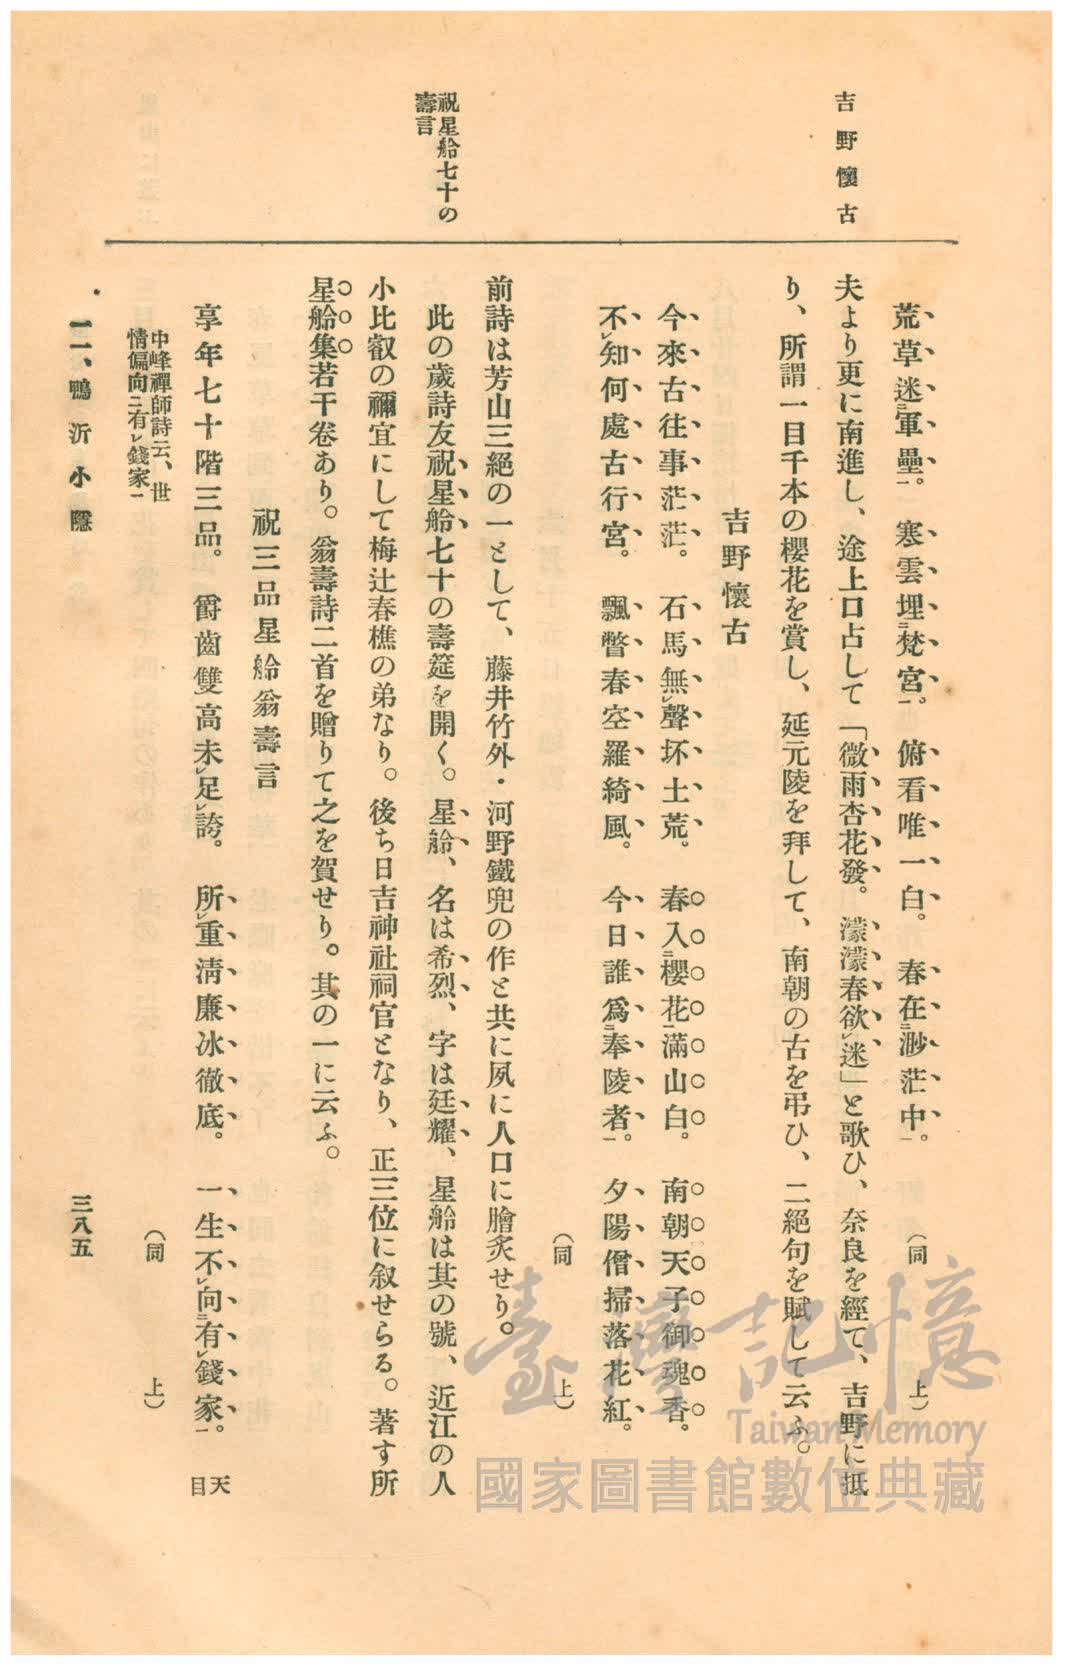 吉野懷古
荒草迷㆓軍壘㆒。　寒雲埋㆓梵宮㆒。　俯看唯一白。　春在㆓渺茫中㆒。　（同　上）
夫より更に南進し、途上口占して「微雨杏花發。濛濛春欲㆑迷」と歌ひ、奈良を經て、吉野に抵
り、所謂一目千本の櫻花を賞し、延元陵を拜して、南朝の古を弔ひ、二絕句を賦して云ふ。
吉野懷古
今來古往事茫茫。　石馬無㆑聲坏土荒。　春入㆓櫻花㆒滿山白。　南朝天子御魂香。
不㆑知何處古行宮。　飄瞥春空羅綺風。　今日誰爲㆓奉陵者㆒。　夕陽僧掃落花紅。
（同　上）
前詩は芳山三絕の一として、藤井竹外・河野鐵兜の作と共に夙に人口に膾炙せり。
祝星舲七十の
壽言
此の歲詩友祝星舲七十の壽筵を開く。星舲、名は希烈、字は廷耀、星舲は其の號、近江の人
小比叡の禰宜にして梅辻春樵の弟なり。後ち日吉神社祠官となり、正三位に叙せらる。著す所
星舲集若干卷あり。翁壽詩二首を贈りて之を賀せり。其の一に云ふ。
祝三品星舲翁壽言
享年七十階三品。　爵齒雙高未㆑足㆑誇。　所㆑重淸廉冰徹底。　一生不㆑向㆓有㆑錢家㆒。　天
目
中峰禪師詩云、世
情偏向㆓有㆑錢家㆒　（同　上）
一二、鴨沂小隱　三八五
臺灣記憶
Taiwan Memory
國家圖書館數位典藏